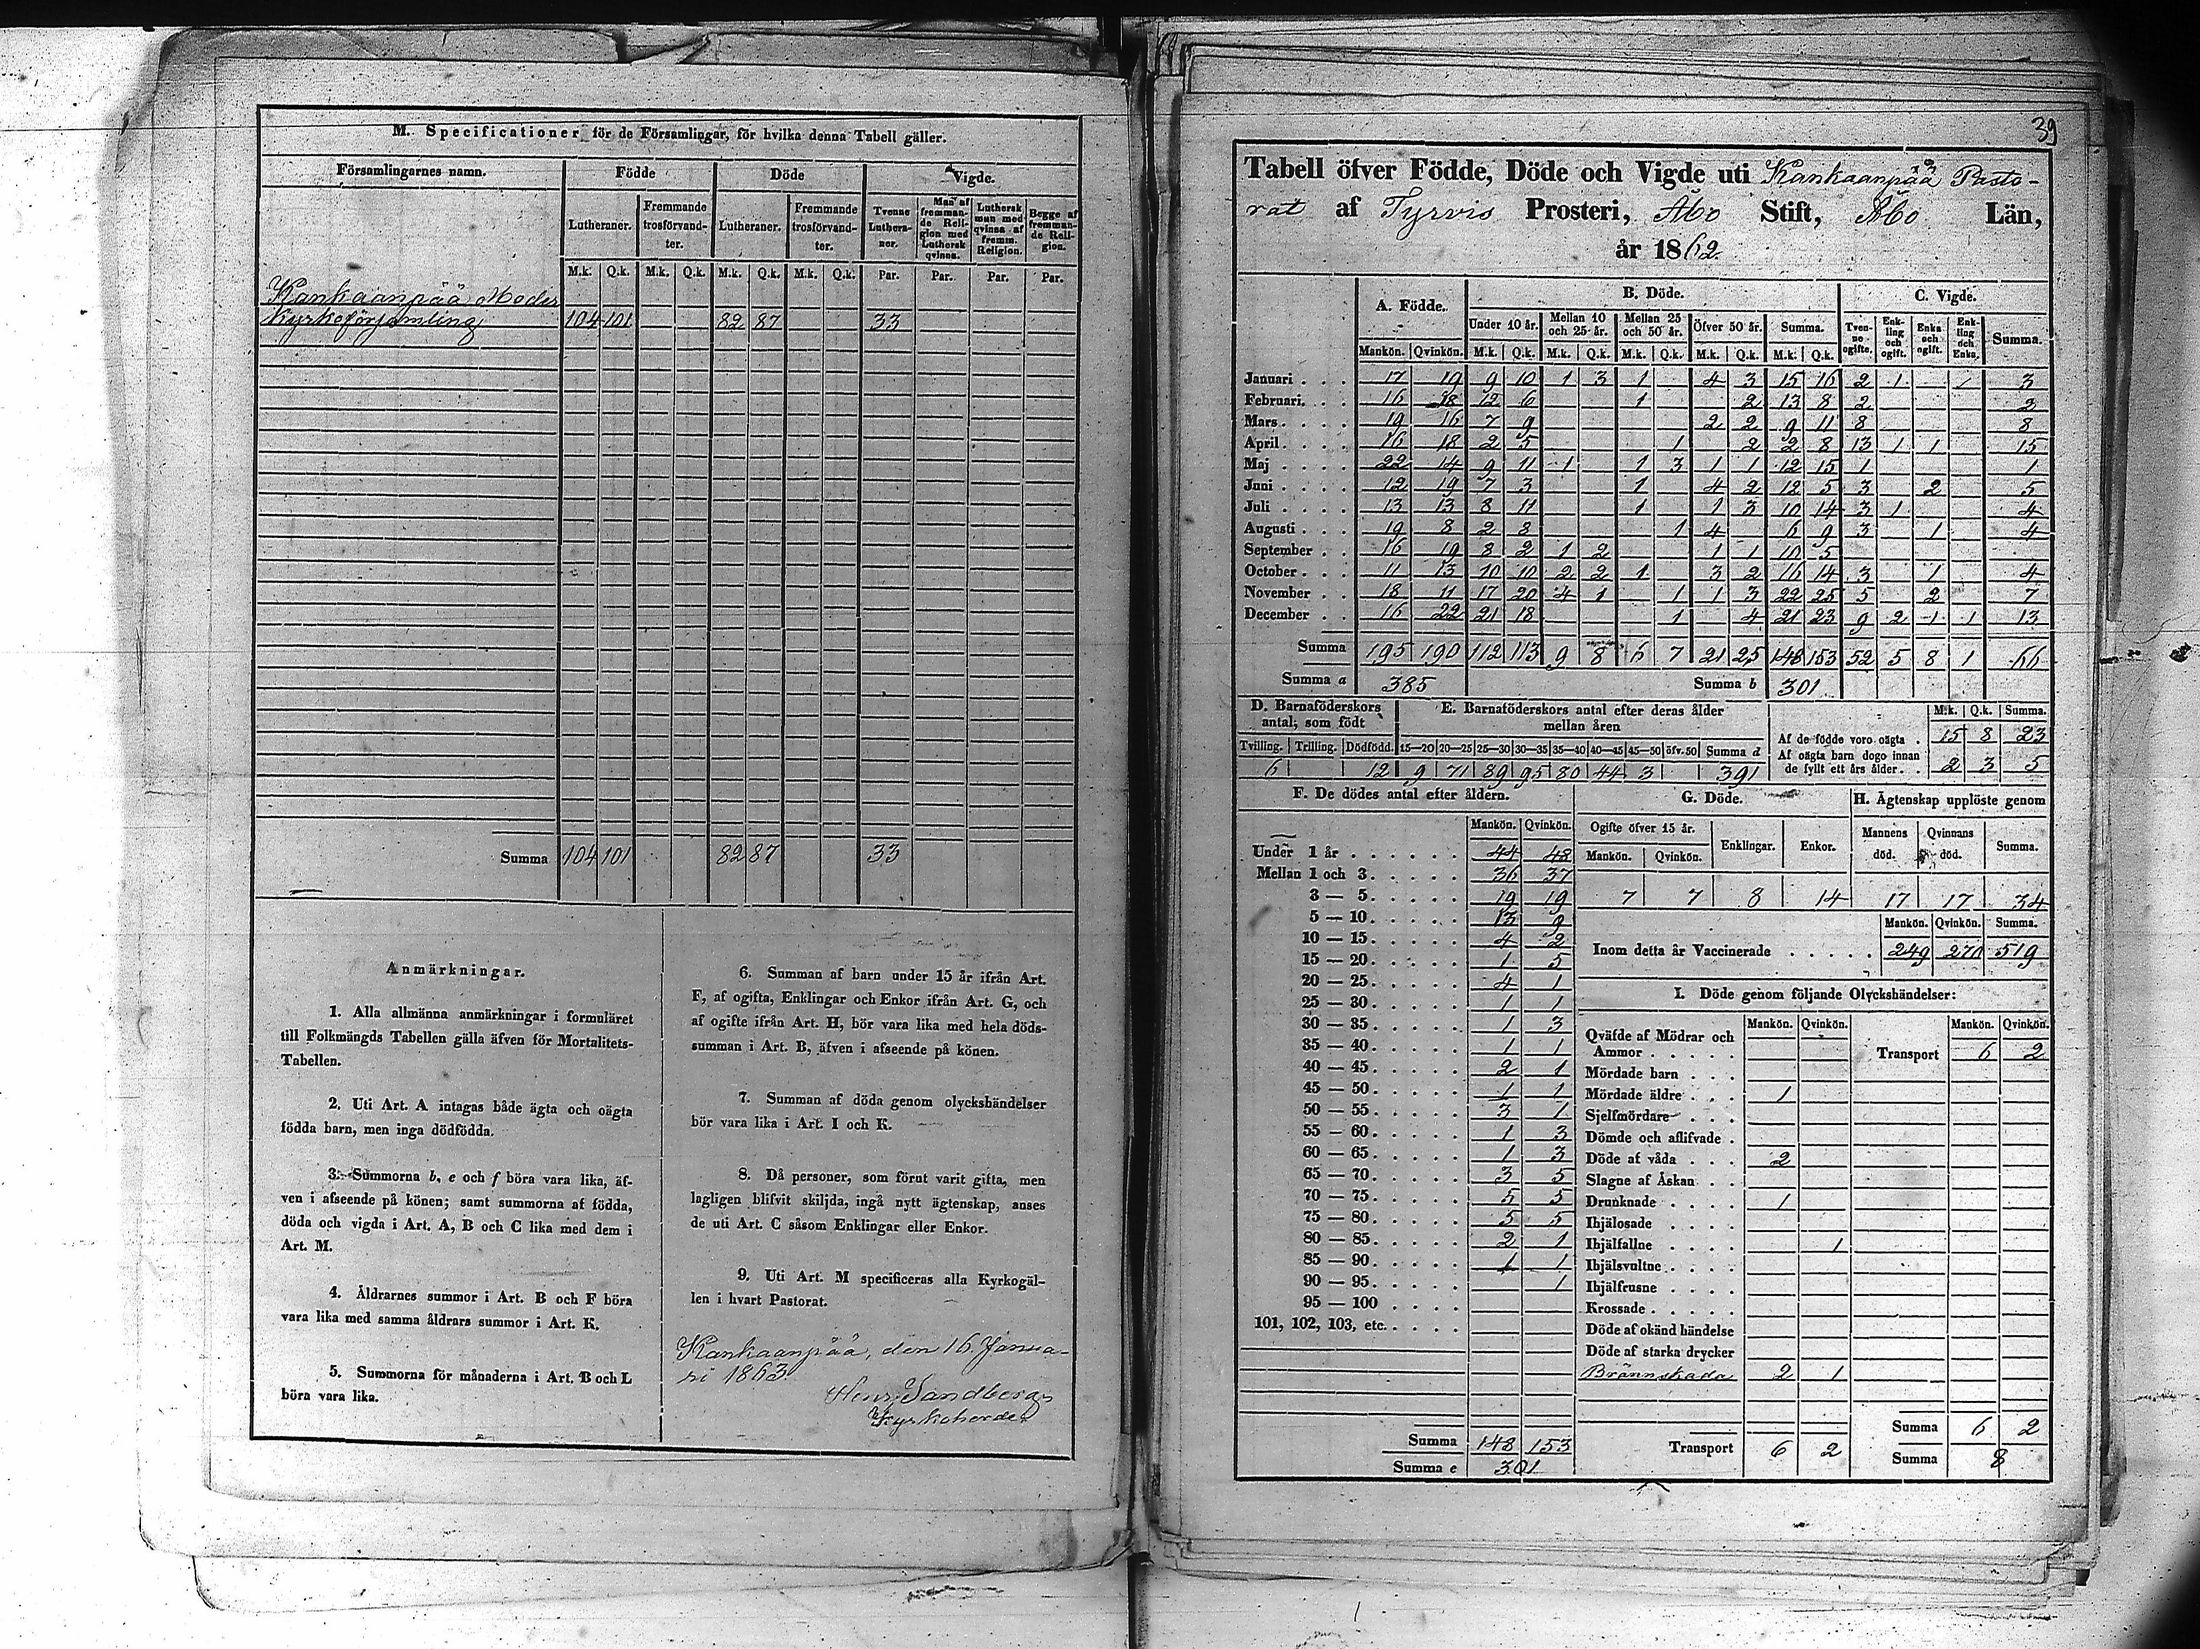 M. Specificationer för de Församlingar, för hvilka denna Tabell gäller.
Församlingarnes namn. Födde Döde Vigde.
Lutheraner. Fremmande trosförvandter. Lutheraner. Fremmande trosförvandter. Tvenne Lutheraner. Man af fremmande Religion med Luthersk qvinna. Luthersk man med qvinna af fremm. Religion. Begge af fremmande Religion.
M.k. Q.k. M.k. Q.k. M.k. Q.k. M.k. Q.k. Par. Par. Par. Par.
Kankaanpää Moder
Kyrkoförsamling 104 101 82 87 33
Summa 104 101 82 87 33
Anmärkningar.
1. Alla allmänna anmärkningar i formuläret
till Folkmängds Tabellen gälla äfven för Mortalitets-
Tabellen.
2. Uti Art. A intagas både ägta och oägta
födda barn, men inga dödfödda.
3. Summorna b, e och f böra vara lika, äf-
ven i afseende på könen; samt summorna af födda,
döda och vigda i Art. A, B och C lika med dem i
Art. M.
4. Åldrarnes summor i Art. B och F böra
vara lika med samma åldrars summor i Art. K.
5. Summorna för månaderna i Art. B och L
böra vara lika.
6. Summan af barn under 15 år ifrån Art.
F, af ogifta, Enklingar och Enkor ifrån Art. G, och
af ogifte ifrån Art. H, bör vara lika med hela döds-
summan i Art. B, äfven i afseende på könen.
7. Summan af döda genom olyckshändelser
bör vara lika i Art. I och K.
8. Då personer, som förut varit gifta, men
lagligen blifvit skiljda, ingå nytt ägtenskap, anses
de uti Art. C såsom Enklingar eller Enkor.
9. Uti Art. M specificeras alla Kyrkogäl-
len i hvart Pastorat.
Kankaanpää, den 16 Janua-
ri 1863
Henr Sandberg
Kyrkoherde
39
Tabell öfver Födde, Döde och Vigde uti Kankaanpää Pasto-
rat af Tyrvis Prosteri, Åbo Stift, Åbo Län,
år 1862.
A. Födde. B. Döde. C. Vigde.
Under 10 år. Mellan 10 och 25 år. Mellan 25 och 50 år. Öfver 50 år. Summa. Tvenne ogifte. Enkling och ogift. Enka och ogift. Enkling och Enka. Summa.
Mankön. Qvinkön. M.k. Q.k. M.k. Q.k. M.k. Q.k. M.k. Q.k. M.k. Q.k.
Januari . . . 17 19 9 10 1 3 1 4 3 15 16 2 1 / 3
Februari. . . 16 18 12 6 1 2 13 8 2 2
Mars . . . . 19 16 7 9 2 2 9 11 8 8
April . . . . 16 18 2 5 1 2 2 8 13 1 1 15
Maj . . . . 22 14 9 11 1 1 3 1 1 12 15 1 1
Juni . . . . 12 19 7 3 1 4 2 12 5 3 2 5
Juli . . . . 13 13 8 11 1 1 3 10 14 3 1 4
Augusti . . . 19 8 2 8 1 4 6 9 3 1 4
September . . 16 19 8 2 1 2 1 1 10 5
October . . . 11 13 10 10 2 2 1 3 2 16 14 3 1 4
November . . 18 11 17 20 4 1 1 1 3 22 25 5 2 7
December . . 16 22 21 18 1 4 21 23 9 2 1 1 13
Summa 195 190 112 113 9 8 6 7 21 25 148 153 52 5 8 1 66
Summa a 385 Summa b 301
D. Barnaföderskors antal, som födt
Tvilling. Trilling. Dödfödd.
6 12
E. Barnaföderskors antal efter deras ålder
mellan åren
15—20 20—25 25—30 30—35 35—40 40—45 45—50 öfv. 50 Summa d
9 71 89 95 80 44 3 391
M.k. Q.k. Summa.
Af de födde voro oägta . 15 8 23
Af oägta barn dogo innan
de fyllt ett års ålder. . 2 3 5
F. De dödes antal efter åldern.
Mankön. Qvinkön.
Under 1 år . . . . . . 44 48
Mellan 1 och 3. . . . . 36 37
3 — 5. . . . . 19 19
5 — 10. . . . . 13 9
10 — 15. . . . . 4 2
15 — 20. . . . . 1 5
20 — 25. . . . . 4 1
25 — 30. . . . . 1 1
30 — 35. . . . . 1 3
35 — 40. . . . . 1 1
40 — 45. . . . . 2 1
45 — 50. . . . . 1 1
50 — 55. . . . . 3 1
55 — 60. . . . . 1 3
60 — 65. . . . . 1 3
65 — 70. . . . . 3 5
70 — 75. . . . . 5 5
75 — 80. . . . . 5 5
80 — 85. . . . . 2 1
85 — 90. . . . . 1 1
90 — 95. . . . . 1
95 — 100 . . . .
101, 102, 103, etc. . . . .
Summa 148 153
Summa e 301
G. Döde.
Ogifte öfver 15 år. Enklingar. Enkor.
Mankön. Qvinkön.
7 7 8 14
H. Ägtenskap upplöste genom
Mannens död. Qvinnans död. Summa.
17 17 34
Mankön. Qvinkön. Summa.
Inom detta år Vaccinerade . . . . . 249 270 519
I. Döde genom följande Olyckshändelser:
Mankön. Qvinkön. Mankön. Qvinkön.
Qväfde af Mödrar och
Ammor . . . . . Transport 6 2
Mördade barn . . .
Mördade äldre . . . 1
Sjelfmördare . . .
Dömde och aflifvade .
Döde af våda . . . 2
Slagne af Åskan . .
Drunknade . . . . 1
Ihjälosade . . . .
Ihjälfallne . . . . 1
Ihjälsvultne . . . .
Ihjälfrusne . . . .
Krossade . . . . .
Döde af okänd händelse
Döde af starka drycker
Brännskada 2 1
Summa 6 2
Transport 6 2 Summa 8